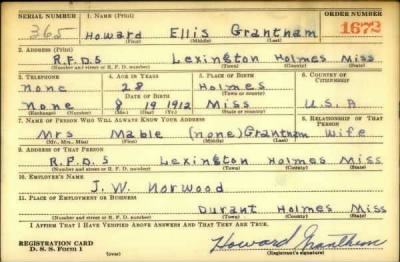 SERIAL NUMBER 1. NAME (Print) ORDER NUMBER
365 Howard Ellis Grantham 1672
(First) (Middle) (Last)
2. ADDRESS (Print)
R.F.D.5 Lexington Holmes Miss
(Number and street or R. F. D. number) (Town) (County) (State)
3. TELEPHONE 4. AGE IN YEARS 5. PLACE OF BIRTH 6. COUNTRY OF CITIZENSHIP
None 28 Holmes
DATE OF BIRTH
None 8 19 1912 Miss U.S.A
7. NAME OF PERSON WHO WILL ALWAYS KNOW YOUR ADDRESS 8. RELATIONSHIP OF THAT PERSON
Mrs Mable (none) Grantham Wife
(Mr., Mrs., Miss) (First) (Middle) (Last)
9. ADDRESS OF THAT PERSON
R.F.D.5 Lexington Holmes Miss
(Number and street or R. F. D. number) (Town) (County) (State)
10. EMPLOYER'S NAME
J. W. Norwood
11. PLACE OF EMPLOYMENT OR BUSINESS
Durant Holmes Miss
(Number and street or R. F. D. number) (Town) (County) (State)
I AFFIRM THAT I HAVE VERIFIED ABOVE ANSWERS AND THAT THEY ARE TRUE.
REGISTRATION CARD
D. S. S. Form 1 Howard Grantham
(Registrant's signature)